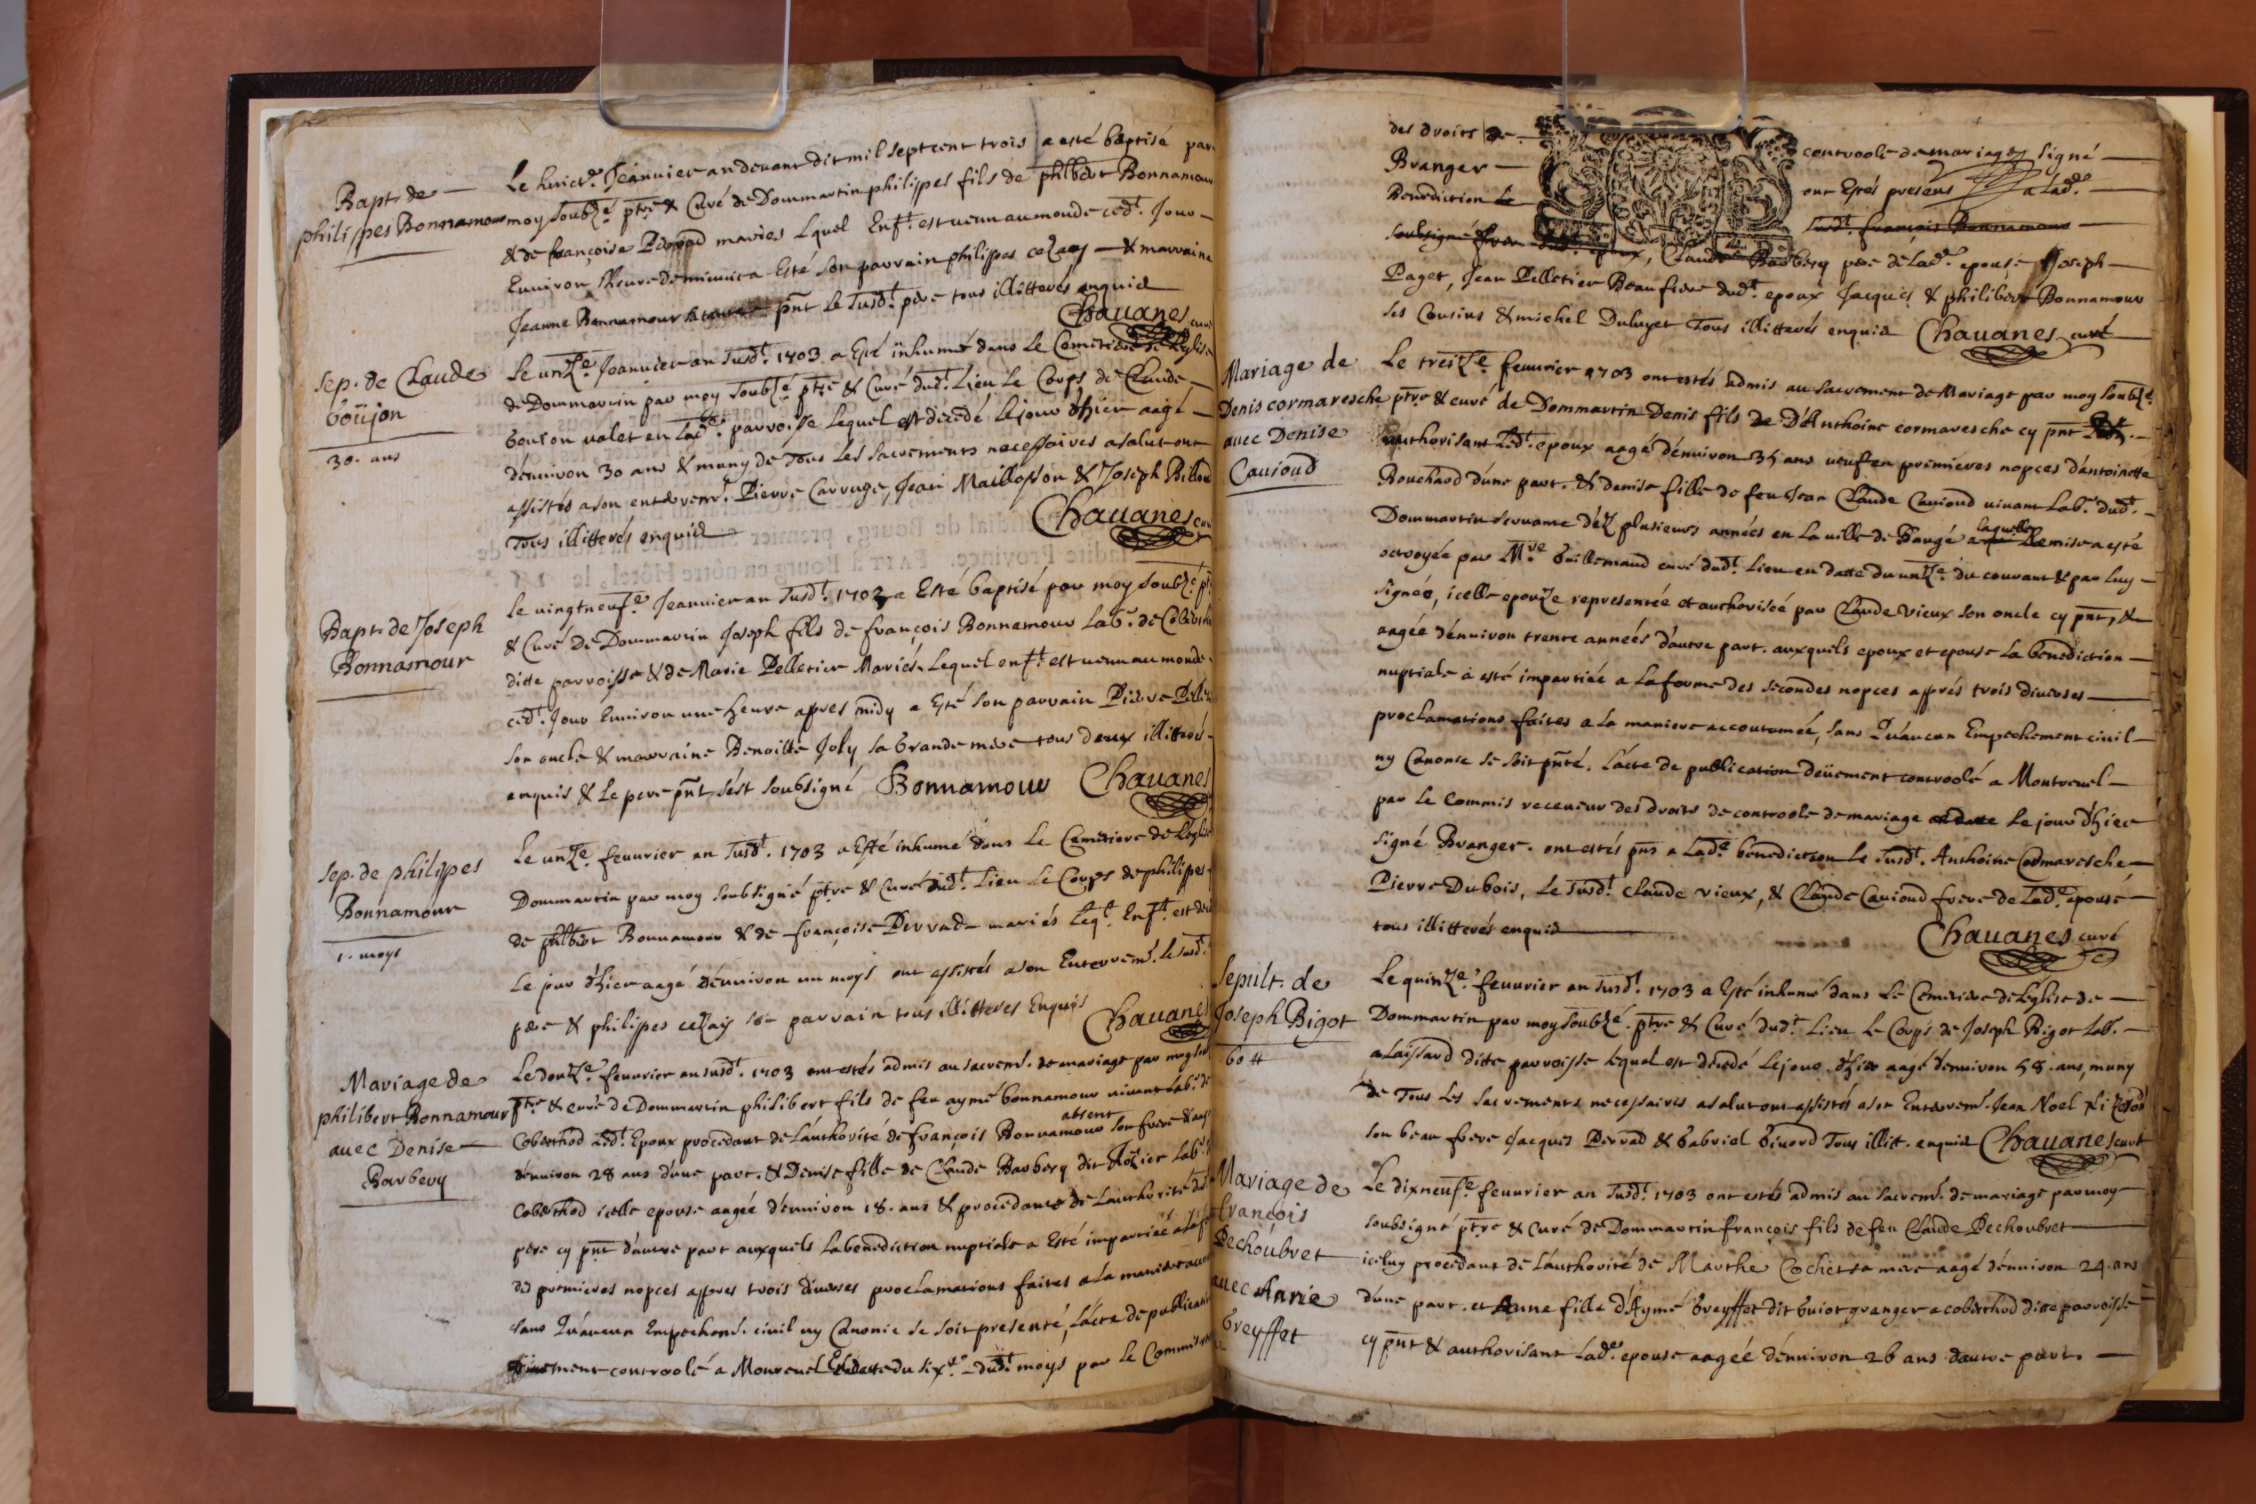 Bapt. de
philippes Bonnamour
Le huict.e Jeanvier an devant dit mil sept cent trois a esté baptisé par
moy soubz.é ptre & Curé de Dommartin philippes fils de philbert Bonnamour
& de françoise Perrad mariés Lequel Enf.t est venu au monde ced.t Jour
Environ l'heure de minuict a Esté son parrain philippes cezay & marraine
Jeanne Bonnamour pñt Le susd.t père tous illitterés enquis
Chauanes curé
Sep. de Claude
boüjon
30. ans
Le unz.e Jeanvier an susd.t 1703 a Esté inhumé dans Le Cemetiere de L'eglise
de Dommartin par moy soubz.é ptre & Curé dud.t Lieu Le Corps de Claude
boujon valet en Lad.e parroisse Lequel est décédé le jour d'hier aagé
d'environ 30 ans & muny de Tous Les sacrements necessaires a salut ont
assistés a son enterrem.t Pierre Carruge, Jean Maillosson & Joseph Billoud
Tous illitterés enquis
Chauanes curé
Bapt. de Joseph
Bonnamour
Le vingtneuf.e Jeanvier an susd.t 1703 a Esté baptisé par moy soubz.é ptre
& Curé de Dommartin Joseph fils de françois Bonnamour Lab.r de Coberthod
ditte parroisse & de Marie Pelletier Mariés. Lequel enf.t est venu au monde
ced.t Jour Environ une heure apres midy a Esté son parrain Pierre Pelletier
son oncle & marraine Benoitte Joly sa Grande mère tous deux illitterés
enquis & Le pere pñt s'est soubsigné Bonnamour Chauanes
Sep. de philippes
Bonnamour
1. moys
Le unz.e feuurier an susd.t. 1703 a Esté inhumé dans Le Cemetiere de L'eglise
Dommartin par moy soubsigné ptre & Curé dud.t Lieu Le Corps de philippes
de philbert Bonnamour & de françoise Perrad mariés Leq.t Enf.t est decedé
Le jour d'hier aagé d'environ un moys ont assistés a son Enterrem.t le susd.t
père & philippes cezay son parrain tous illitterés Enquis
Chauanes
Mariage de
philibert Bonnamour
avec Denise
Barbery
Le douz.e feuurier an susd.t. 1703 ont estés admis au sacrem.t de mariage par moy soubz.é
ptre & curé de Dommartin philibert fils de feu aymé bonnamour vivant Lab.r de
Coberthod Led.t Epoux procedant de L'authorité de françois Bonnamour absent son frere & aagé
d'environ 28 ans d'une part. & Denise fille de Claude Barbery dit Rozier Lab.r
Coberthod icelle epouse aagée d'environ 18. ans & procedante de L'authorité dud.t
père cy pñt d'autre part auxquels La benediction nuptiale a Esté impartiée a La forme
des premieres nopces appres trois diverses proclamations faites a La maniere accoutumée
sans Qu'aucun Empechem.t. civil ny Canonic se soit presenté, L'acte de publication
deüement controolé a Montrevel En datte du six.e dud.t moys par Le Commis receveur
des droits de controole de mariages signé
Branger ont Estés presens a Lad.e
Benediction Le susd.t françois Bonnamour
Claude Barbery père de Lad.e epouse Joseph
Paget, Jean Pelletier Beau frere dud.t epoux Jacques & philibert Bonnamour
ses Cousins & michel Duluyet Tous illitterés enquis Chauanes curé
Mariage de
Denis cormaresche
avec Denise
Cauioud
Le treiz.e feuurier 1703 ont estés admis au sacrement de Mariage par moy soubz.é
ptre & curé de Dommartin Denis fils de D'Anthoine cormaresche cy pñt
authorisant Led.t epoux aagé d'environ 35 ans veuf en premières nopces d'antoinette
Rouchard d'une part. & denise fille de feu Jean Claude Cauioud vivant Lab.r dud.t
Dommartin servante déz plusieurs années en La ville de Baugé laquelle Remise a esté
octroyée par M.re Guillemaud curé dud.t Lieu en datte du unz.e du courant & par Luy
signée, icelle epouze representée et authorisée par Claude Vieux son oncle cy pñt, &
aagée d'environ trente années d'autre part. auxquels epoux et epouse La benediction
nuptiale à esté impartiée a La forme des secondes nopces apprés trois diverses
proclamations faites a La maniere accoutumée, sans Qu'aucun Empechement civil
ny Canonic se soit pñté. L'acte de publication deüement controolé a Montrevel
par Le Commis receveur des droits de controole de mariage Le jour d'hier
signé Branger. ont estés pñs a Lad.e benediction Le susd.t. Anthoine Cormaresche
Pierre Dubois, Le susd.t Claude vieux, & Claude Cauioud frere de Lad.e epouse
tous illitterés enquis
Chauanes curé
Sepult. de
Joseph Bigot
60 #
Le quinz.e feuurier an susd.t. 1703 a Esté inhumé dans Le Cemetiere de L'eglise de
Dommartin par moy soubz.é. ptre & Curé dud.t Lieu Le Corps de Joseph Bigot Lab.r
a Laissard ditte parroisse Lequel est décédé Le jour d'hier aagé d'environ 58. ans, muny
de Tous Les sacrements necessaires a salut ont assistés a son Enterrem.t Jean Noel
son beau frere Jacques Perrad & Gabriel Givord Tous illitt. enquis Chauanes curé
Mariage de
françois
Pechoubret
avec Anne
Greyffet
Le dixneuf.e feuurier an susd.t 1703 ont estés admis au sacrem.t. de mariage par moy
soubsigné ptre & Curé de Dommartin françois fils de feu Claude Pechoubret
iceluy procedant de L'authorité de Marthe Cochet sa mere aagé d'environ 24. ans
d'une part. et Anne fille d'Aymé Greyffet dit Guiot granger a coberthod ditte parroisse
cy pñt & authorisant Lad.e epouse aagée d'environ 26 ans d'autre part.